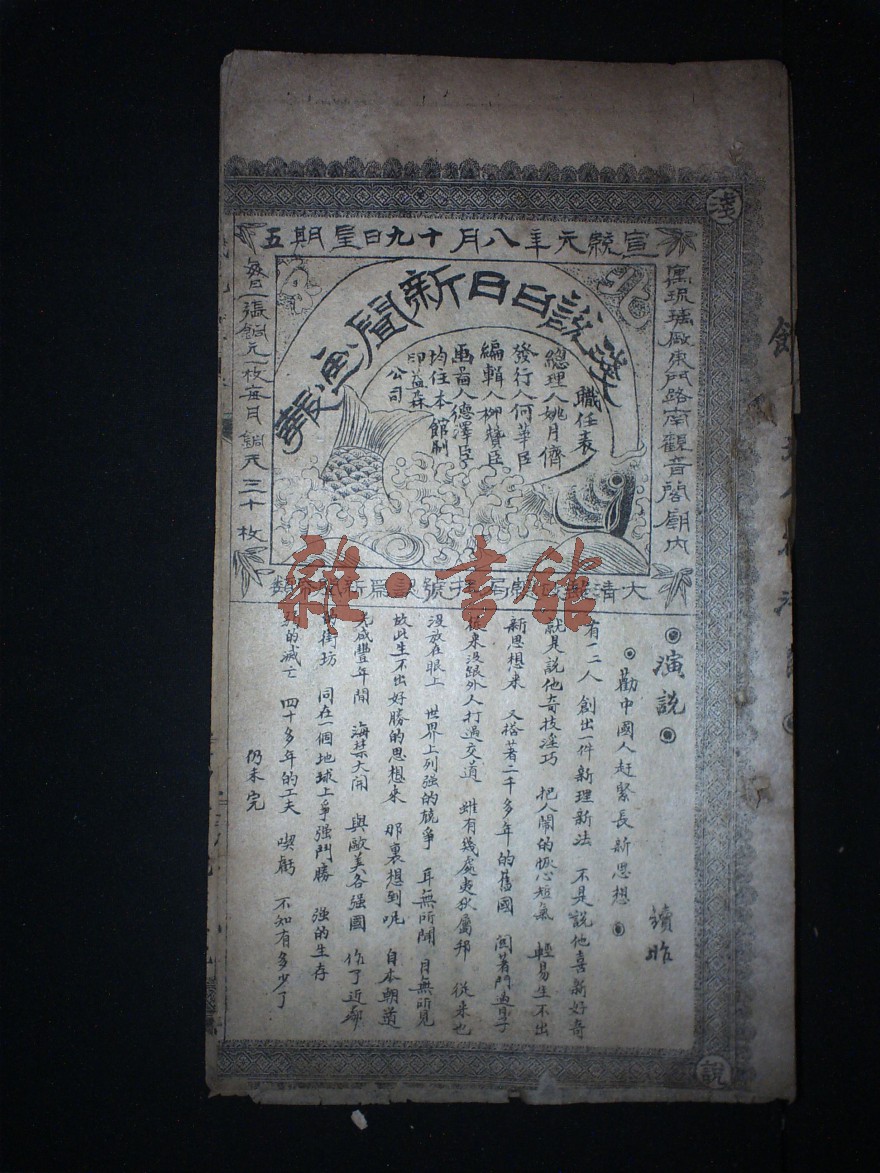 淺
宣統元年八月十九日星期五
寓琉璃厰東門路南觀音閣廟內
淺說日日新聞畫報
職任表
總理人姚月儕
發行人何華臣
編輯人柳贊臣
畫畣人德澤臣
均住本館
印益森
公司
每日一張銅元一枚每月銅元三十枚
大清郵政局掛號認爲新聞紙類
◎演說◎
續昨
◎勸中國人赶緊長新思想◎
有一二人 創出一件新理新法 不是說他喜新好奇
就是說他奇技淫巧 把人鬧的恢心短氣 輕易生不出
新思想來 又搭著二千多年的舊國 關著門過日子
從來沒跟外人打過交道 雖有幾處夷狄屬邦 從來也
沒放在眼上 世界上列強的競爭 耳無所聞 目無所見
故此生不出好勝的思想來 那裏想到呢 自本朝道
光咸豐年間 海禁大開 與歐美各強國 作了近鄰
街坊 同在一個地球上爭强鬥勝 强的生存
的滅亡 四十多年的工夫 喫虧 不知有多少了
仍未完
說
雜·書館